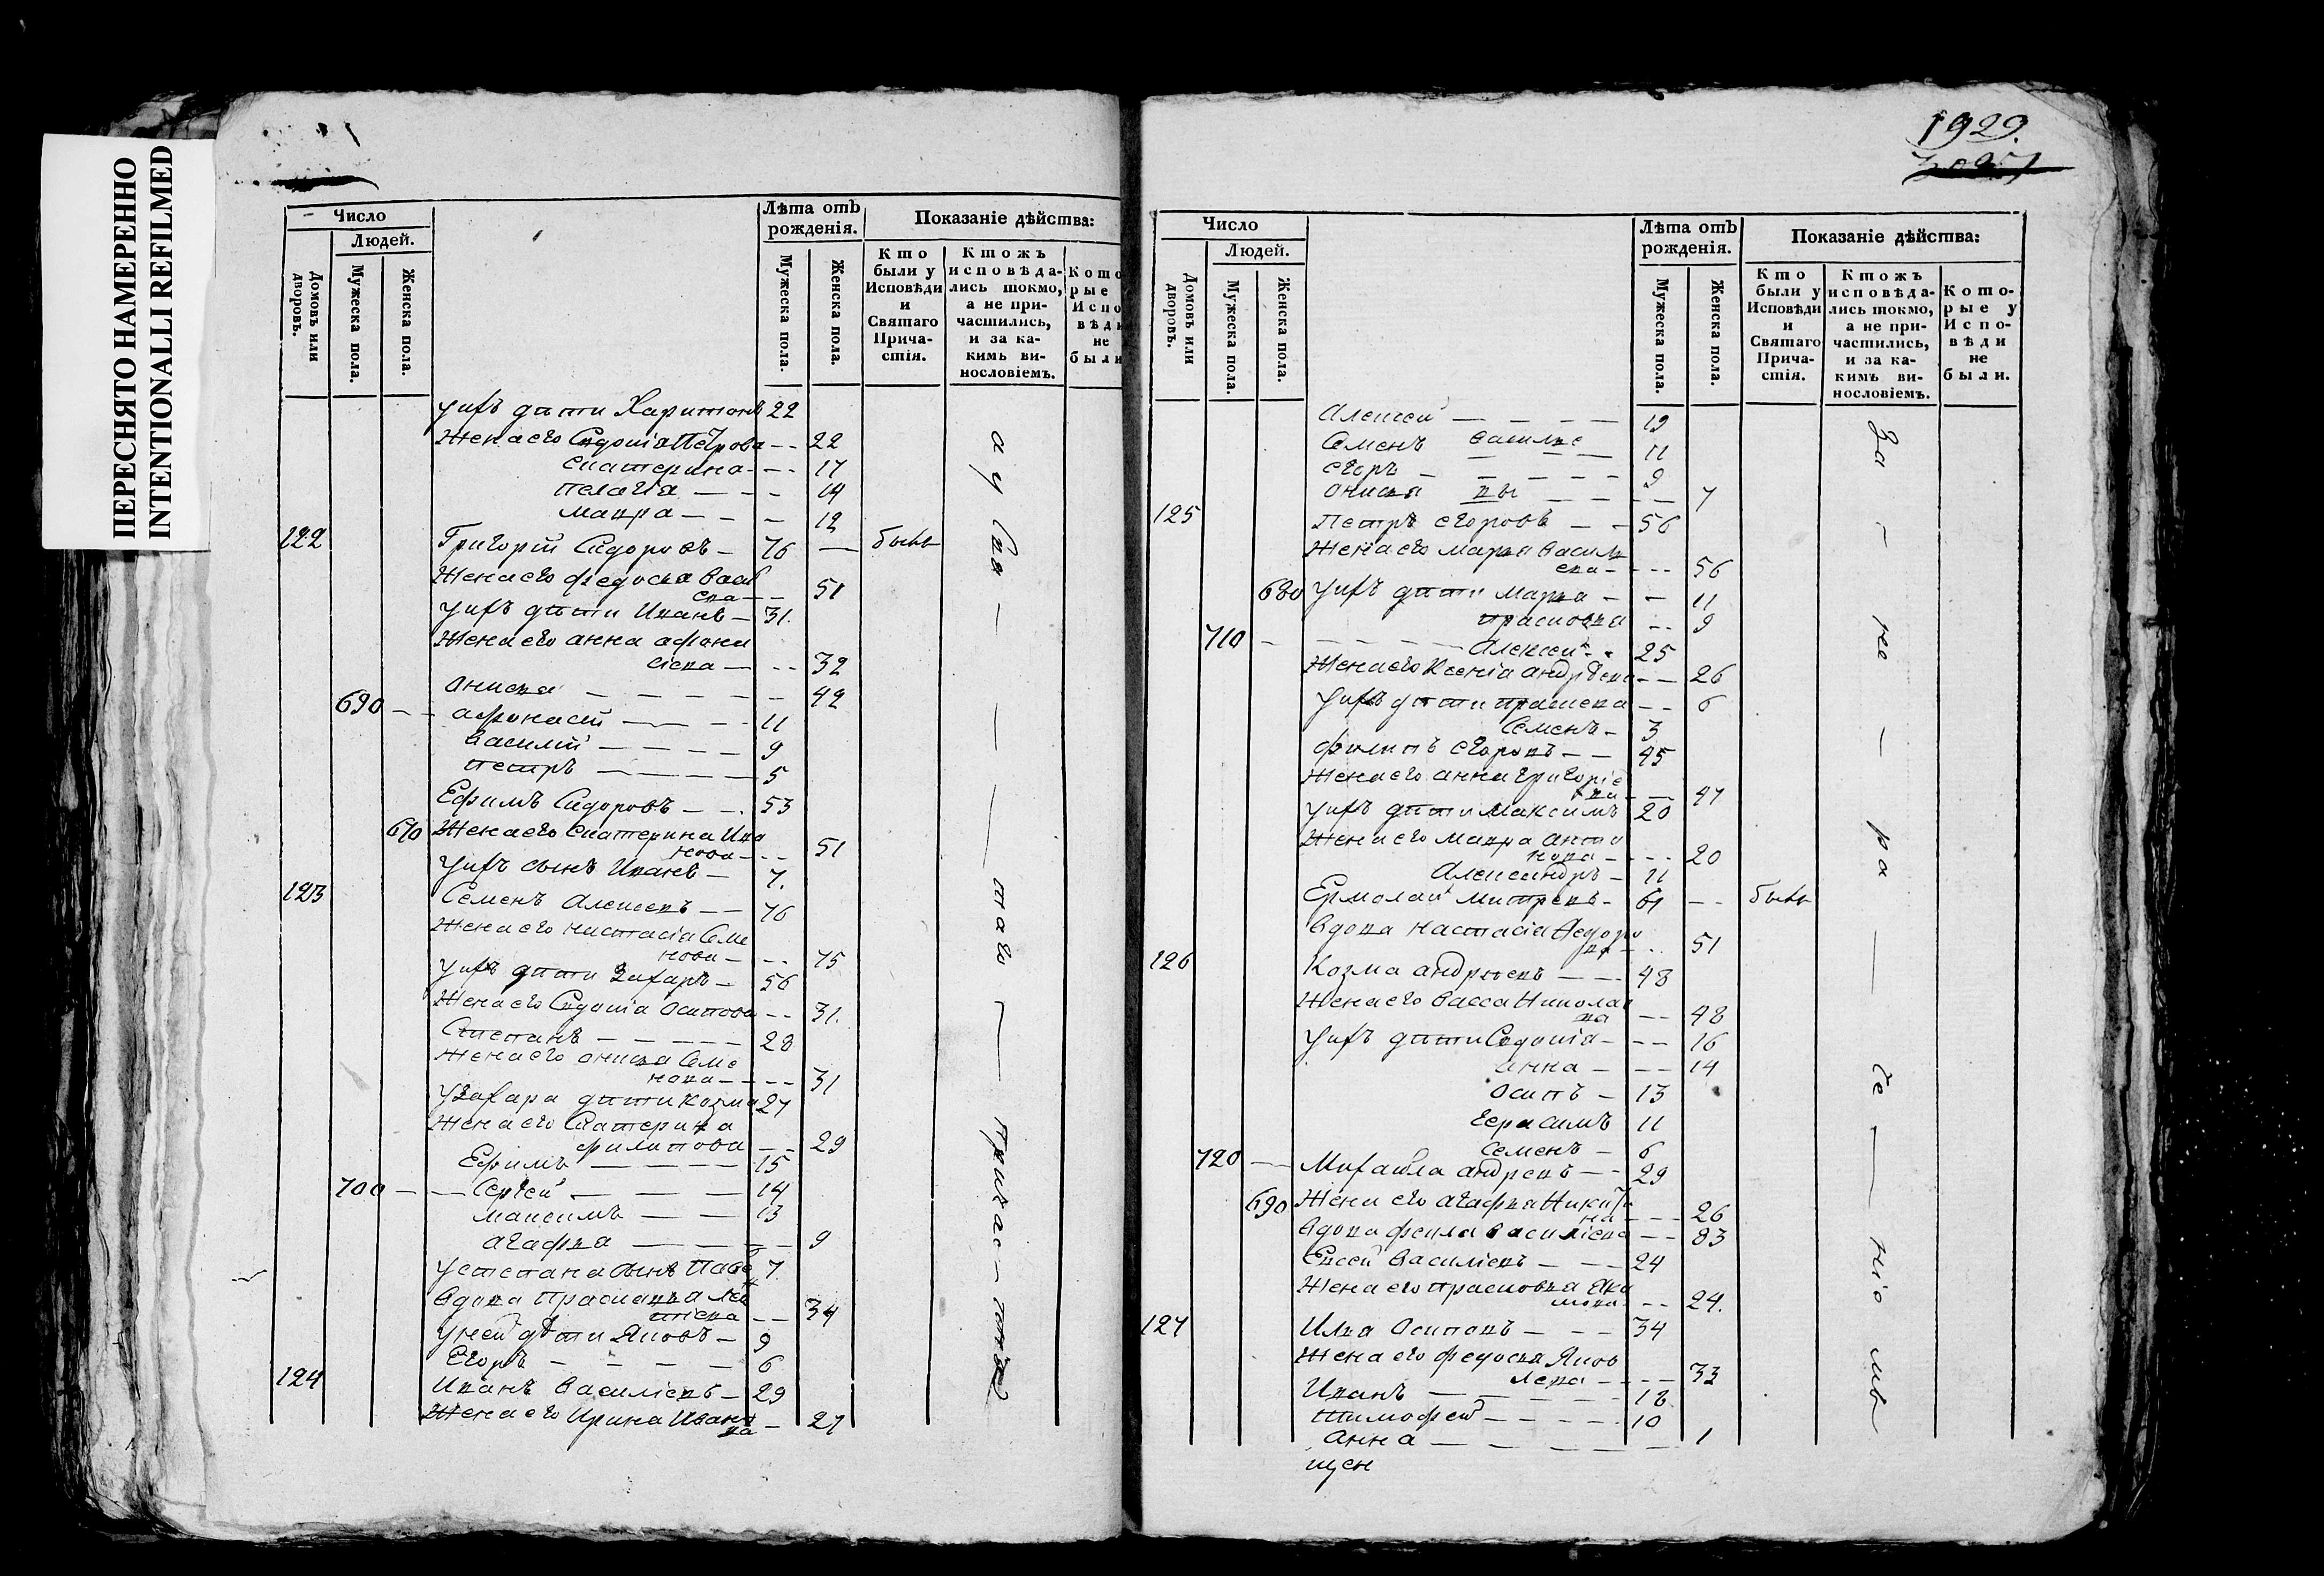 ПЕРЕСНЯТО НАМЕРЕННО
INTENTIONALLI REFILMED
Число
Людей.
Домовъ или дворовъ.
Мужеска пола.
Женска пола.
Лѣта отъ рожденія.
Мужеска пола.
Женска пола.
Показаніе дѣйства:
Кто были у Исповѣди и Святаго Причастія.
Ктожъ исповѣдались токмо, а не причастились, и за какимъ винословіемъ.
Кото рые Испо вѣди не были
ухъ дѣти Харитонъ 22
Жена его Евдокія Петрова -- 22
Екатерина --- 17
Пелагія --- 14
Мавра --- 12
122 Григорій Сидоровъ - 76 — бывъ
Жена его Федосья
51
ухъ дѣти Иванъ - 31.
Жена его Анна Афона
сіева --- 32
Анисья 42
690 -- Афонасій --- 11
Василій --- 9
Петръ --- 5
Ефимъ Сидоровъ -- 53
670 Жена его Екатерина Ива
нова --- 51
ухъ сынъ Иванъ - 7.
123 Семенъ Алексевъ -- 76
Жена его Настасіа Семе
нова --- 75
ухъ дѣти Захаръ - 56
Жена его Евдокіа Осипова -- 31.
Степанъ --- 28
Жена его Анисья Семе
нова --- 31
у Захара дѣти Козма 27
Жена его Екатерина
Филипова -- 29
Ефимъ --- 15
700 -- Сергей --- 14
Максимъ --- 13
Агафья --- 9
у Степана сынъ Паве 7.
Вдова Прасковья
34
у ней дѣти Яковъ - 9
Егоръ --- 6
124 Иванъ Василіевъ - 29
Жена его Ирина Иванo
ва - 27
1929.
Число
Людей.
Домовъ или дворовъ.
Мужеска пола.
Женска пола.
Лѣта отъ рожденія.
Мужеска пола.
Женска пола.
Показаніе дѣйства:
Кто были у Исповѣди и Святаго Причастія.
Ктожъ исповѣдались токмо, а не причастились, и за какимъ винословіемъ.
Которые у Исповѣди не были.
Алексей --- 19
Семенъ Василье 11
Егоръ --- 9
Анисья вы --- 7
125 Петръ Егоровъ -- 56
Жена его Марья Василь
ева --- 56
680 ухъ дѣти Марья -- 11
Прасковья -- 9
710 - Алексей - 25
Жена его Ксеніа Андрѣева -- 26
ухъ дѣти -- 6
Семенъ - 3
Филипъ Егоровъ -- 45
Жена его Анна Григоріе
ва -- 47
ухъ дѣти Максимъ 20
Жена его Мавра Анти
нова --- 20
Александръ - 11
Ермолай Митревъ - 61 -- бывъ
Вдова Настасіа Федоро
ва -- 51
126 Козма Андрюевъ -- 48
Жена его Васса Никола
ва -- 48
ухъ дѣти Евдокіа --- 16
Анна --- 14
Осипъ - 13
Герасимъ 11
Семенъ - 6
720 -- Михайла Андревъ -- 29
690 Жена его Агафья Никити
на --- 26
Вдова Фекла Василіева -- 83
Евсей Василіевъ -- 24
Жена его Прасковья Яко
-- 24.
127 Илья Осиповъ -- 34
Жена его Федосья Яков
лева --- 33
Иванъ --- 18
Тимофей --- 10
Анна --- 1
За - не - ра - че - ніе мъ